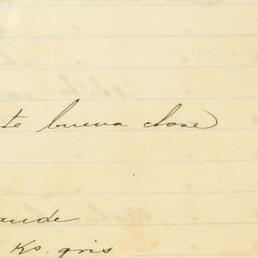 te buena clase
ande
Ko. gris